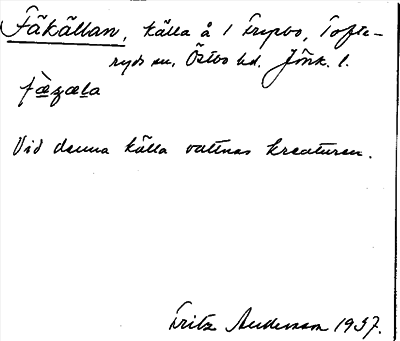 Fäkällan, källa å 1 Trypbo, Tofte-
ryds sn. Östbo hd. Jönk. l.
fæ̀zæla
Vid denna källa vattnas kreaturen.
Fritz Andersson 1937.